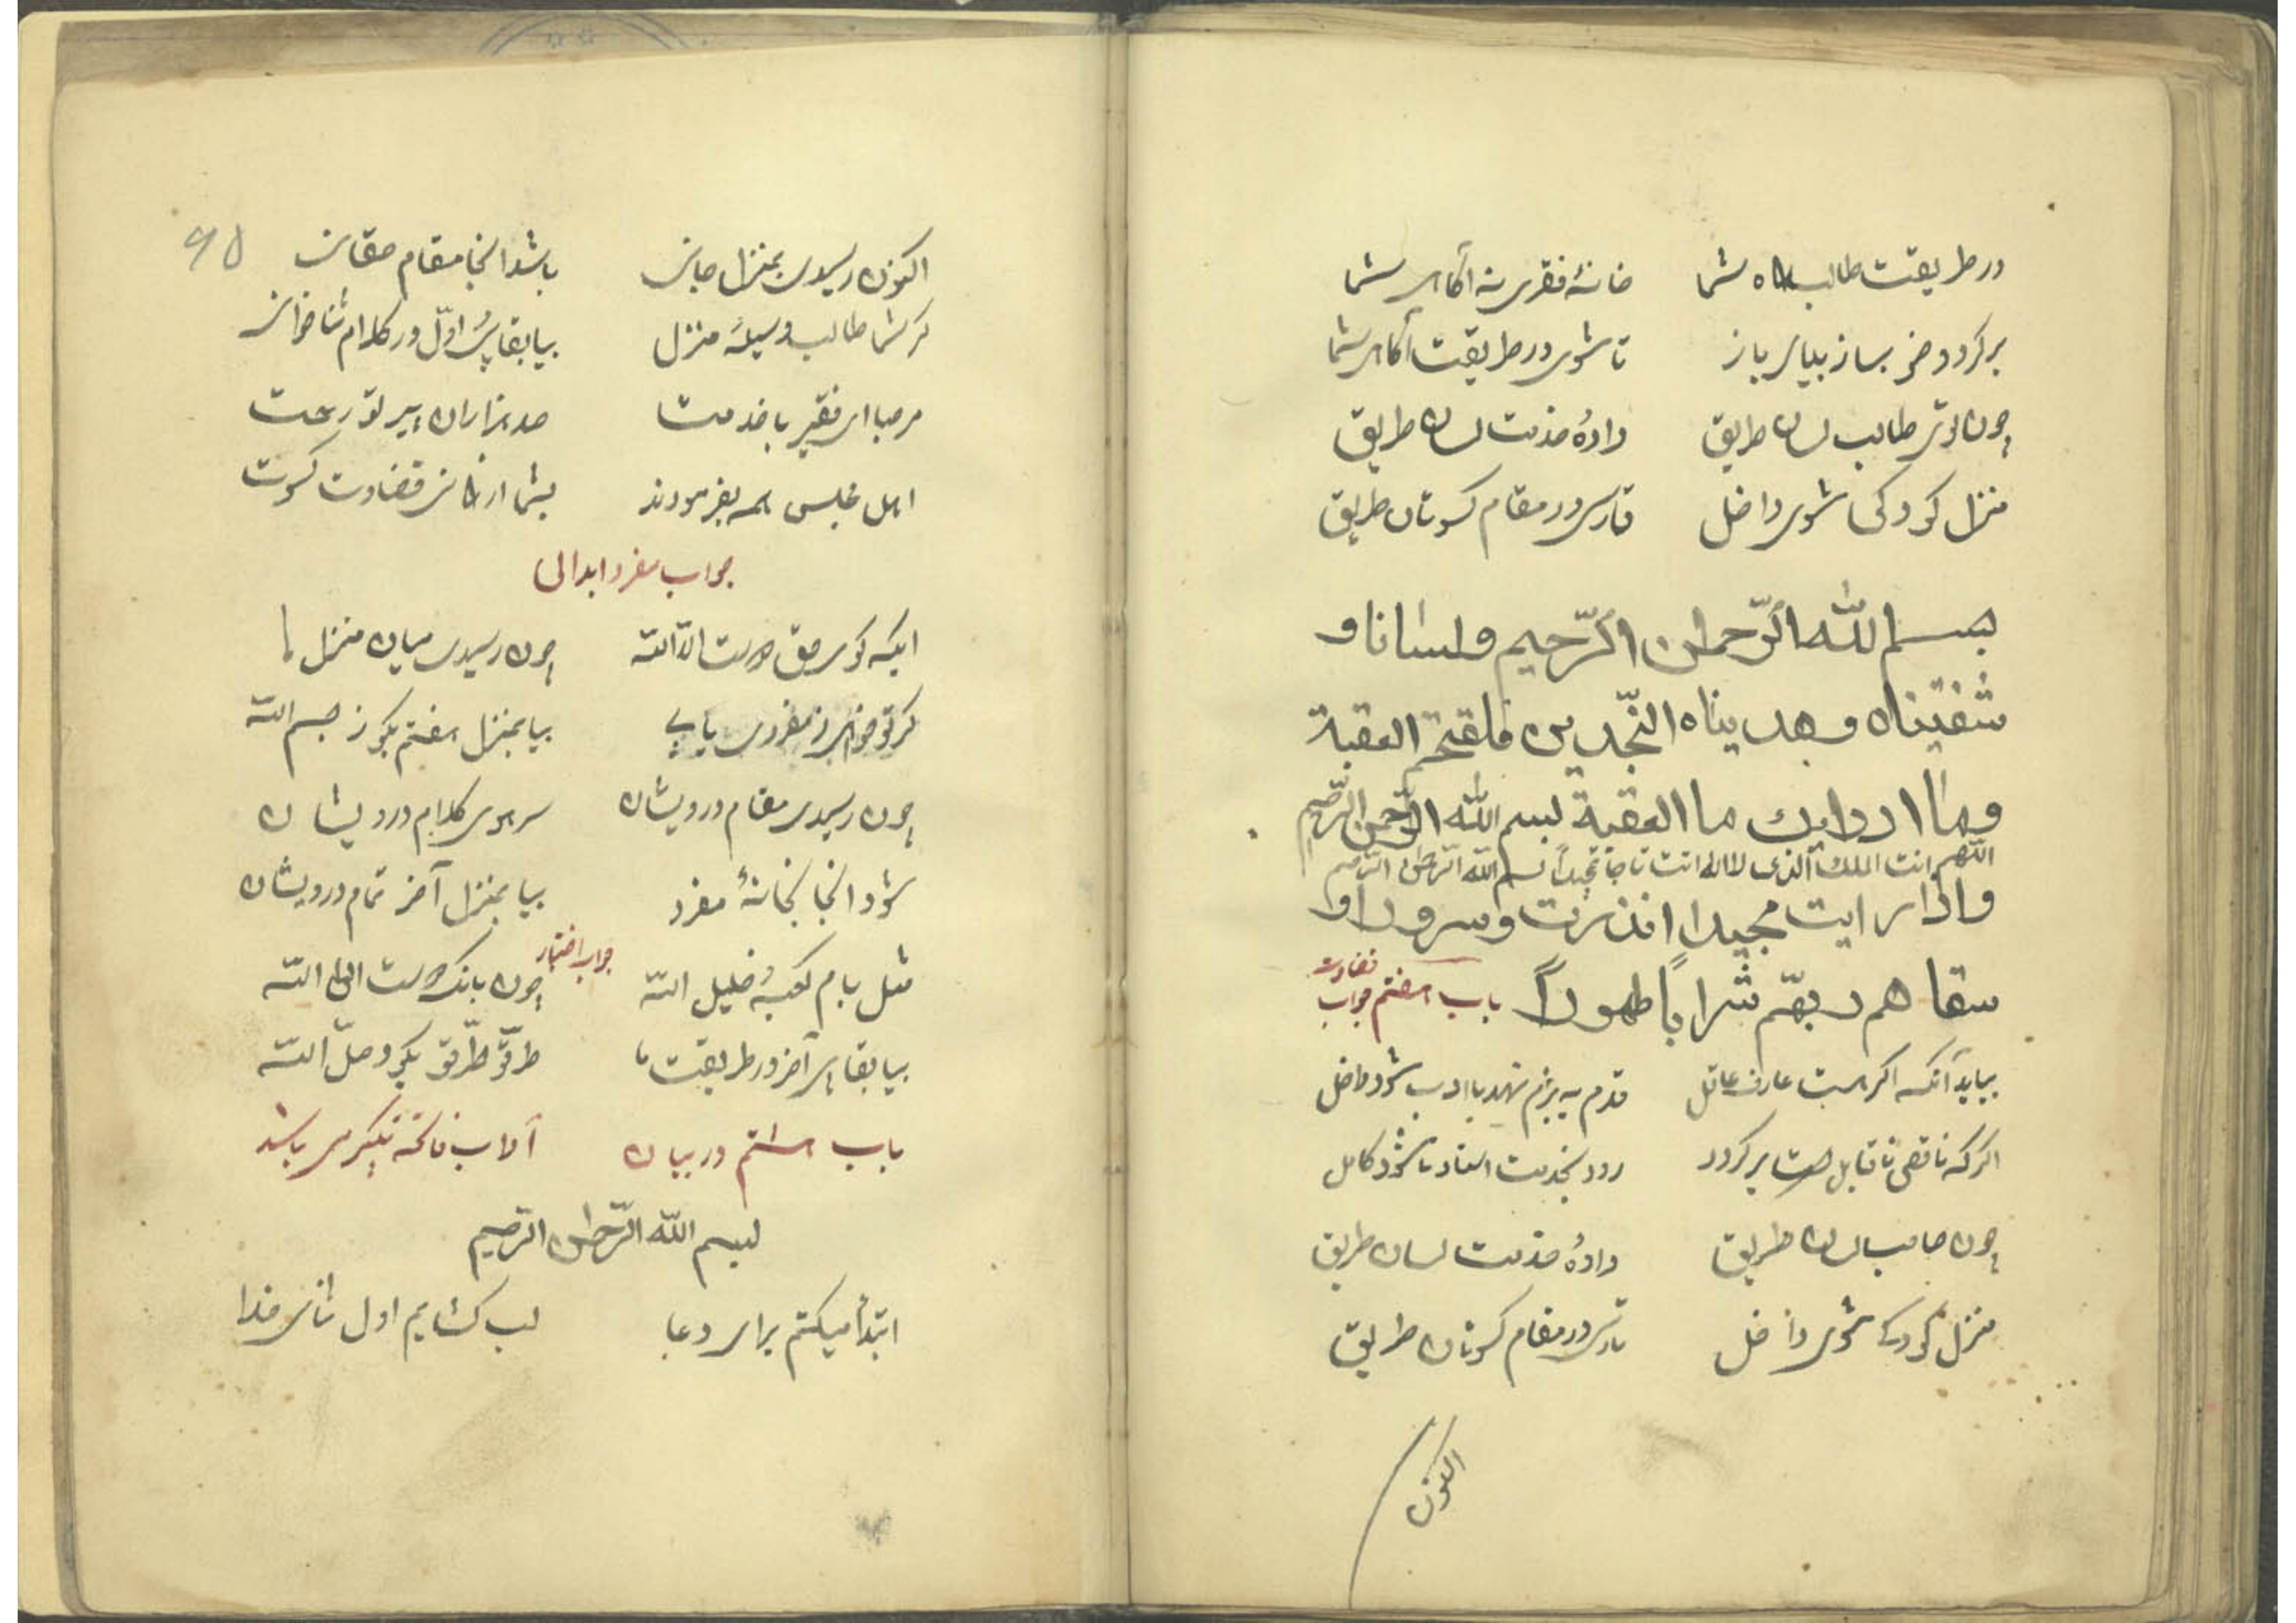 در طریقت طالب راه شما خانهٔ فقری نه آکاهی شما
برکرد و خر بساز بیای باز تا شوی در طریقت آکاه شما
چون توی طالب لسان طریق دادهٔ خذمت لسان طریق
منزل کودکی شوی داخل تا رسی در مقام کسوتان طریق
بسم الله الرّحمان الرّحیم ولسانا و
شفتیناه وهدیناه النّجدین فلقتحم العقبة
وما ادرایک ما العقبة بسم الله الرّحمن الرّحیم
اللّهم انت الملک الذی لا اله انت بسم الله الرّحمن الرّحیم
واذا رایت وسرورا و
سقاهم ربهّم شراباً طهوراً باب هفتم جواب
قضاوت
بیاید آنکه اکر هست عارف عاقل قدم به بزم نهد با ادب شود داخل
اکر که ناقص ناقابل است برکردد رود بخذمت استاد تا شود کامل
چون صاحب لسان طریق دادهٔ خذمت لسان طریق
منزل کودک شوی داخل تا رسی در مقام کسوتان طریق
اکنون
۶۵
اکنون رسیدی بمنزل جانی باشد اینجا مقام حقانی
کر شما طالب وسیلهٔ منزل بیا بقاپی اوّل در کلام ثنا خوانی
مرحبا ای فقیر با خذمت صد هزاران بپیر تو رحمت
اهل مجلس همه بفرمودند بشما ارزانی قضاوت کسوت
جواب مفرد ابدالی
ایکه کوی حق دوست الا الله چون رسیدی میان منزل ما
کر تو خواهی رمز مفردی یابی بیا بمنزل هفتم بکو ز بسم الله
چون رسیدی مقام درویشان سر بری کلام درویشان
شود اینجا بخانهٔ مفرد بیا بمنزل آخر تمام درویشان
جواب اختیار
مثل بام کعبهٔ خلیل الله چون بانک دوست الی الله
بیا بقاپی آخر در طریقت ما طرقّ طرّق بکو وصلّ الله
باب هشتم در بیان آداب فاتحه تکبیر می باشد
بسم الله الرّحمان الرّحیم
ابتدأ میکنم برای دعا لب کشایم اول ثنای خدا